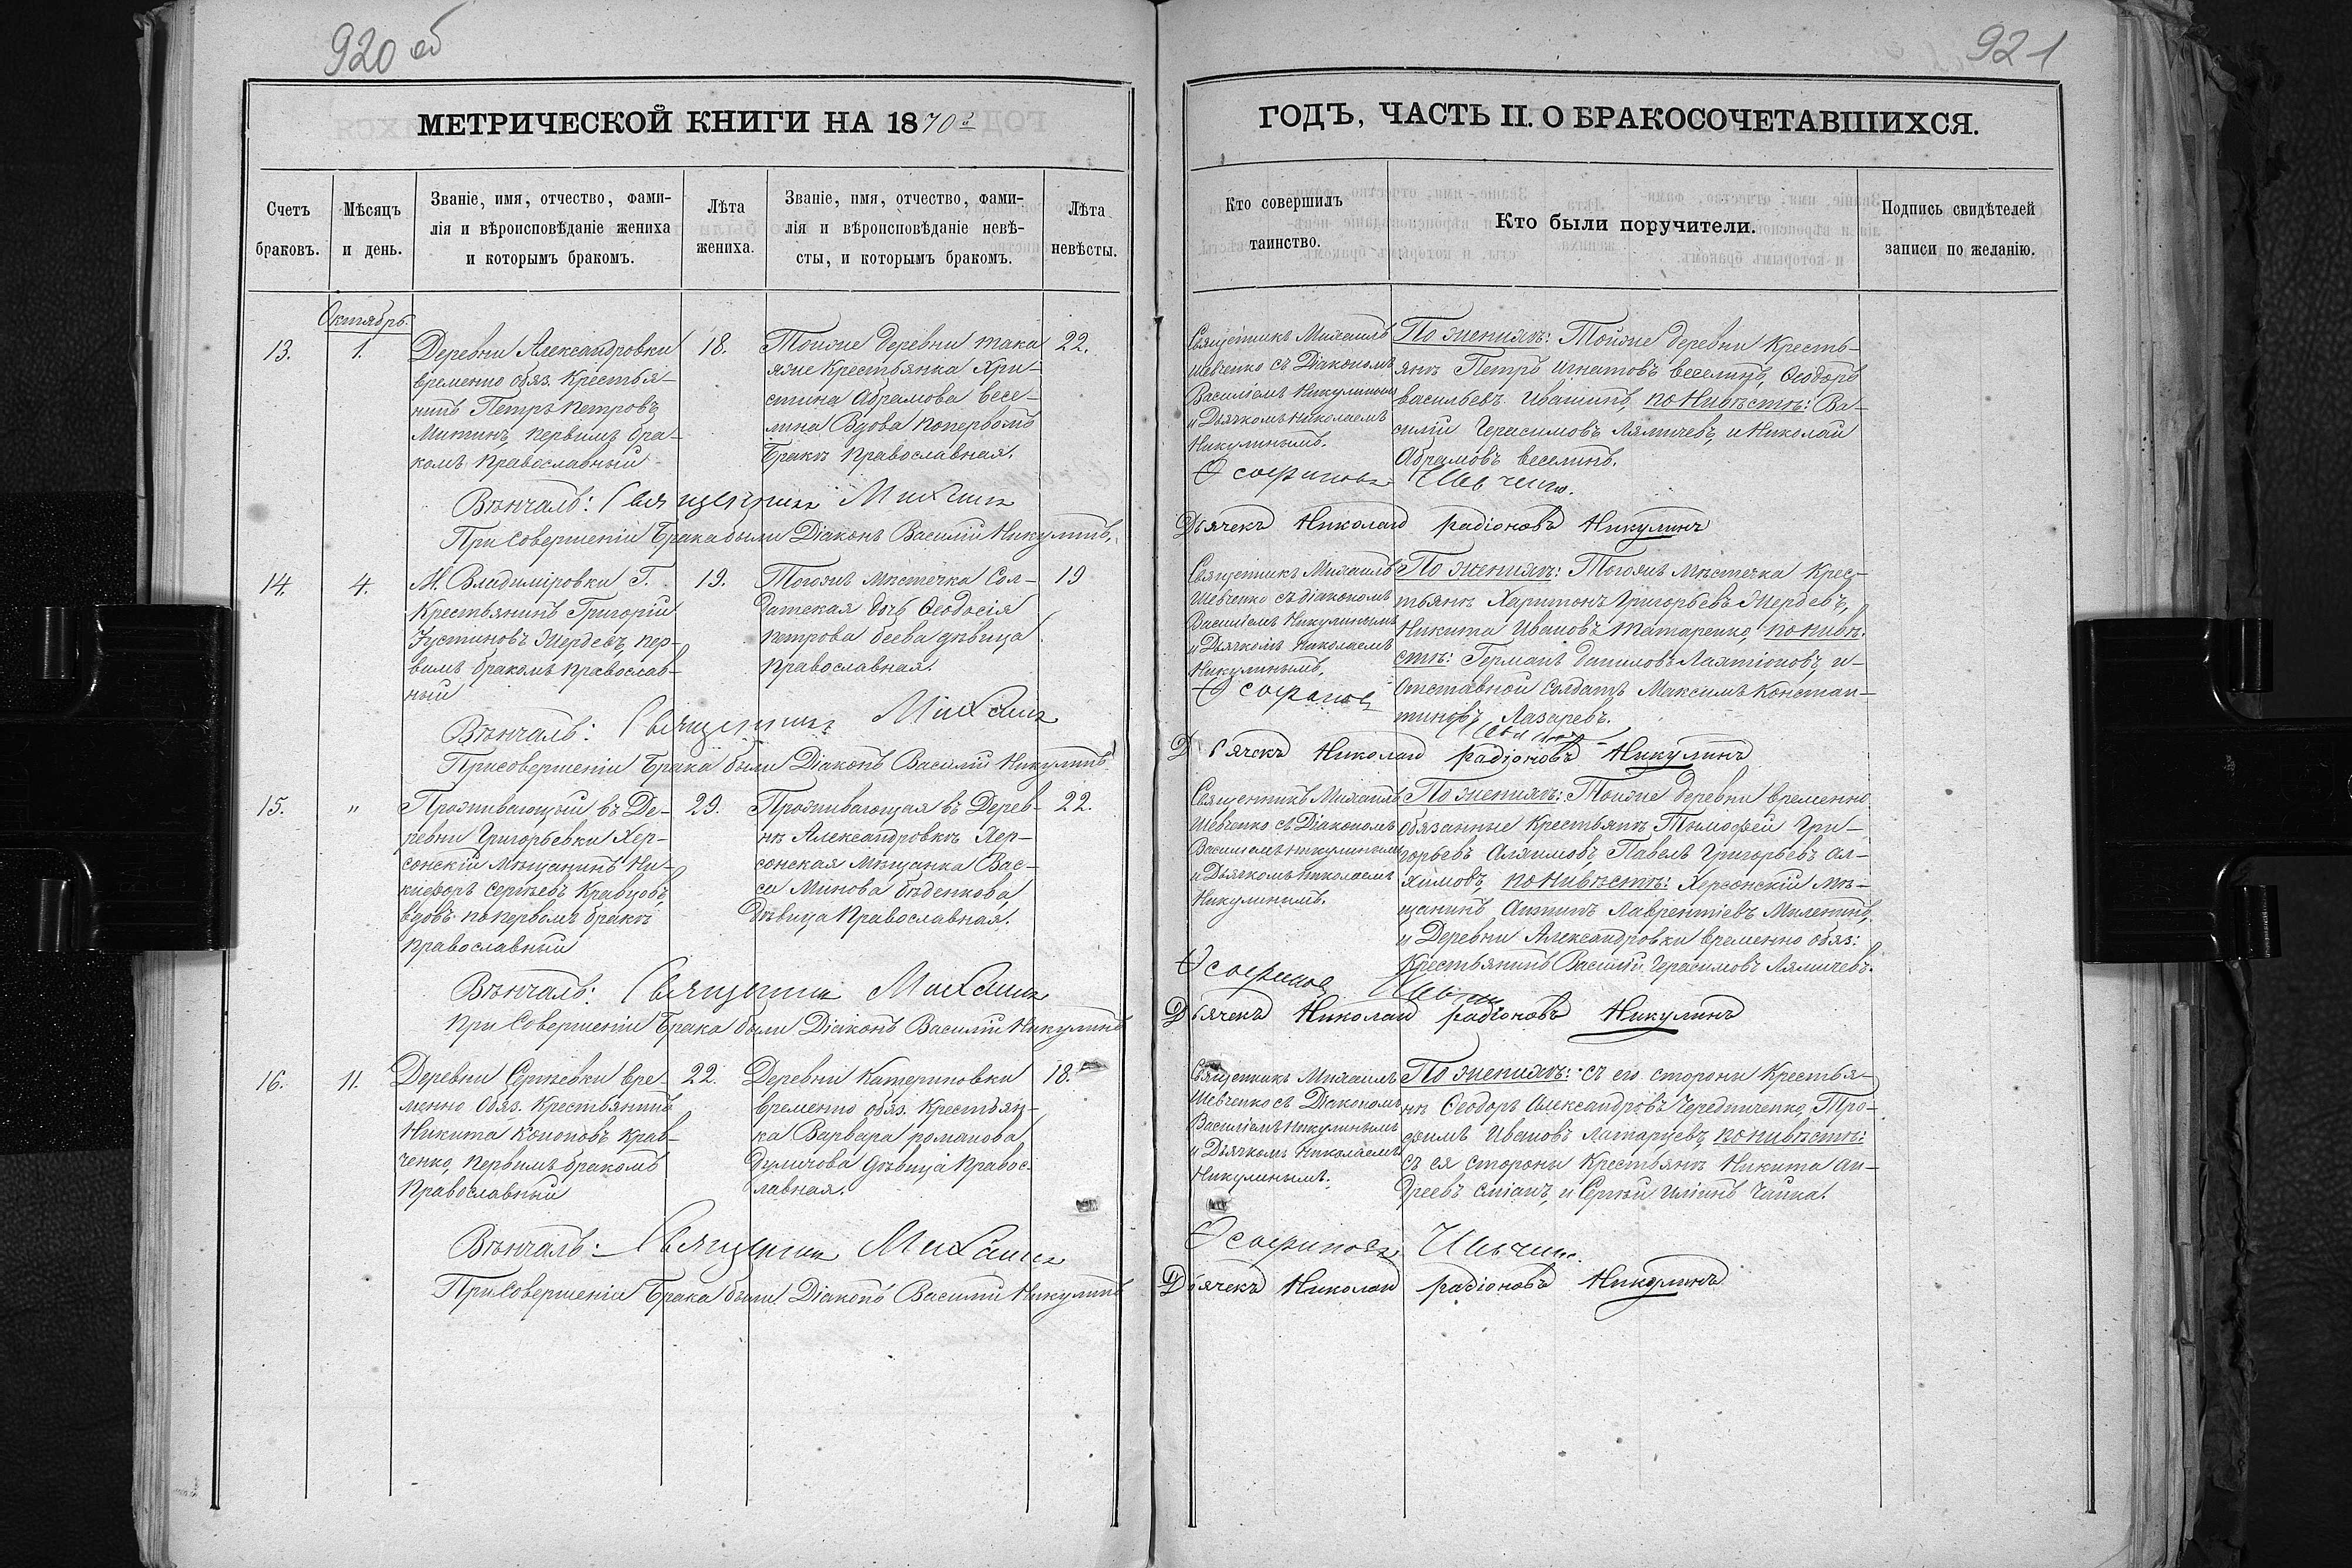 920 об
921
МЕТРИЧЕСКОЙ КНИГИ НА 1870й
ГОДЪ, ЧАСТЬ II. О БРАКОСОЧЕТАВШИХСЯ.
Счетъ браковъ.
Мѣсяцъ и день.
Званіе, имя, отчество, фами-
лія и вѣроисповѣданіе жениха
и которымъ бракомъ.
Лѣта жениха.
Званіе, имя, отчество, фами-
лія и вѣроисповѣданіе невѣ-
сты, и которымъ бракомъ.
Лѣта невѣсты.
Кто совершилъ
таинство.
Кто были поручители.
Подпись свидѣтелей
записи по желанію.
Октябрь.
13.
1.
Деревни Александровки
временно обяз. Крестья-
нинъ Петръ Петровъ
Митинъ, первымъ бра-
комъ православный
18.
Тойже деревни така
яже Крестьянка Хри-
стина Абрамова Весе-
лина Вдова по первомъ
Бракѣ православная.
22.
Священникъ Михаилъ
Шевченко съ Діакономъ
Василіемъ Никулинымъ
и Дьячкомъ Николаемъ
Никулинымъ.
По женихѣ: Тойже деревни Кресть-
яне Петръ Игнатовъ Веселинъ, Ѳеодоръ
Васильевъ Ивашинъ, по Нивѣстѣ: Ва-
силій Герасимовъ Лямичевъ, и Николай
Абрамовъ Веселинъ.
Вѣнчалъ: Священникъ Михаилъ
Ѳеофиловъ Шевченко.
При Совершеніи Брака были Діаконъ Василій Никулинъ,
Дьячекъ Николай радіоновъ Никулинъ
14.
4.
М. Владиміровки Г.
Крестьянинъ Григорій
Іустиновъ Жердевъ, пер-
вымъ бракомъ православ-
ный
19.
Тогожъ мѣстечка Сол-
датская дочь Ѳеодосія
Петрова беева дѣвица
православная.
19
Священникъ Михаилъ
Шевченко съ діакономъ
Василіемъ Никулинымъ
и Дьячкомъ Николаемъ
Никулинымъ,
По женихѣ: Тогожъ мѣстечка Крес-
тьяне Харитонъ Григорьевъ Жердевъ,
Никита Ивановъ Татаренко, по нивѣ-
стѣ: Германъ Даниловъ Лаятіоновъ, и
Отставной солдатъ Максимъ Констан-
тиновъ Лазаревъ.
Вѣнчалъ: Священникъ Михаилъ
При совершеніи Брака были Діаконъ Василій Никулинъ
Дьячекъ Николай радіоновъ Никулинъ
15.
"
Проживающій въ Де-
ревни Григорьевки Хер-
сонскій мѣщанинъ Ни-
кифоръ Сергѣевъ Кравцовъ,
вдовъ по первомъ бракѣ
православный
29.
Проживающая въ Дерев-
нѣ Александровкѣ Хер-
сонская Мѣщанка Вас-
са Минова Бѣденкова,
Дѣвица Православная.
22.
Священникъ Михаилъ
Шевченко съ Діакономъ
Василіемъ Никулинымъ
и Дьячкомъ Николаемъ
Никулинымъ.
По женихѣ: Тойже деревни временно
обязанные Крестьяне Тимофей Гри-
горьевъ Аляимовъ, Павелъ Григорьевъ Ал-
яимовъ, по нивѣстѣ: Херсонскій мѣ-
щанинъ Антипъ Лаврентіевъ Милетинъ,
и Деревни Александровки временно обяз:
Крестьянинъ Василій Герасимовъ Лямичевъ.
Вѣнчалъ: Священникъ Михаилъ
При Совершеніи Брака были Діаконъ Василій Никулинъ
Дьячекъ Николай радіоновъ Никулинъ
16.
11.
Деревни Сергѣевки вре-
менно обяз. Крестьянинъ
Никита Кононовъ Крав-
ченко, первымъ бракомъ
Православный
22.
Деревни Катериновки
временно обяз. Крестьян-
ка Варвара романова
Думичова дѣвица Правос-
лавная.
18.
Священникъ Михаилъ
Шевченко съ Діакономъ
Василіемъ Никулинымъ
и Дьячкомъ Николаемъ
Никулинымъ.
По женихѣ: съ его стороны Крестья-
не Ѳеодоръ Александровъ Чередниченко, Тро-
фимъ Ивановъ Латарцевъ, по нивѣстѣ:
съ ея стороны Крестьяне Никита Ан-
дреевъ сміанъ, и Сергѣй Иліинъ Чайка.
Вѣнчалъ: Священникъ Михаилъ
Ѳеофиловъ Шевченко
При Совершеніи Брака были Діаконъ Василій Никулинъ
Дьячекъ Николай радіоновъ Никулинъ